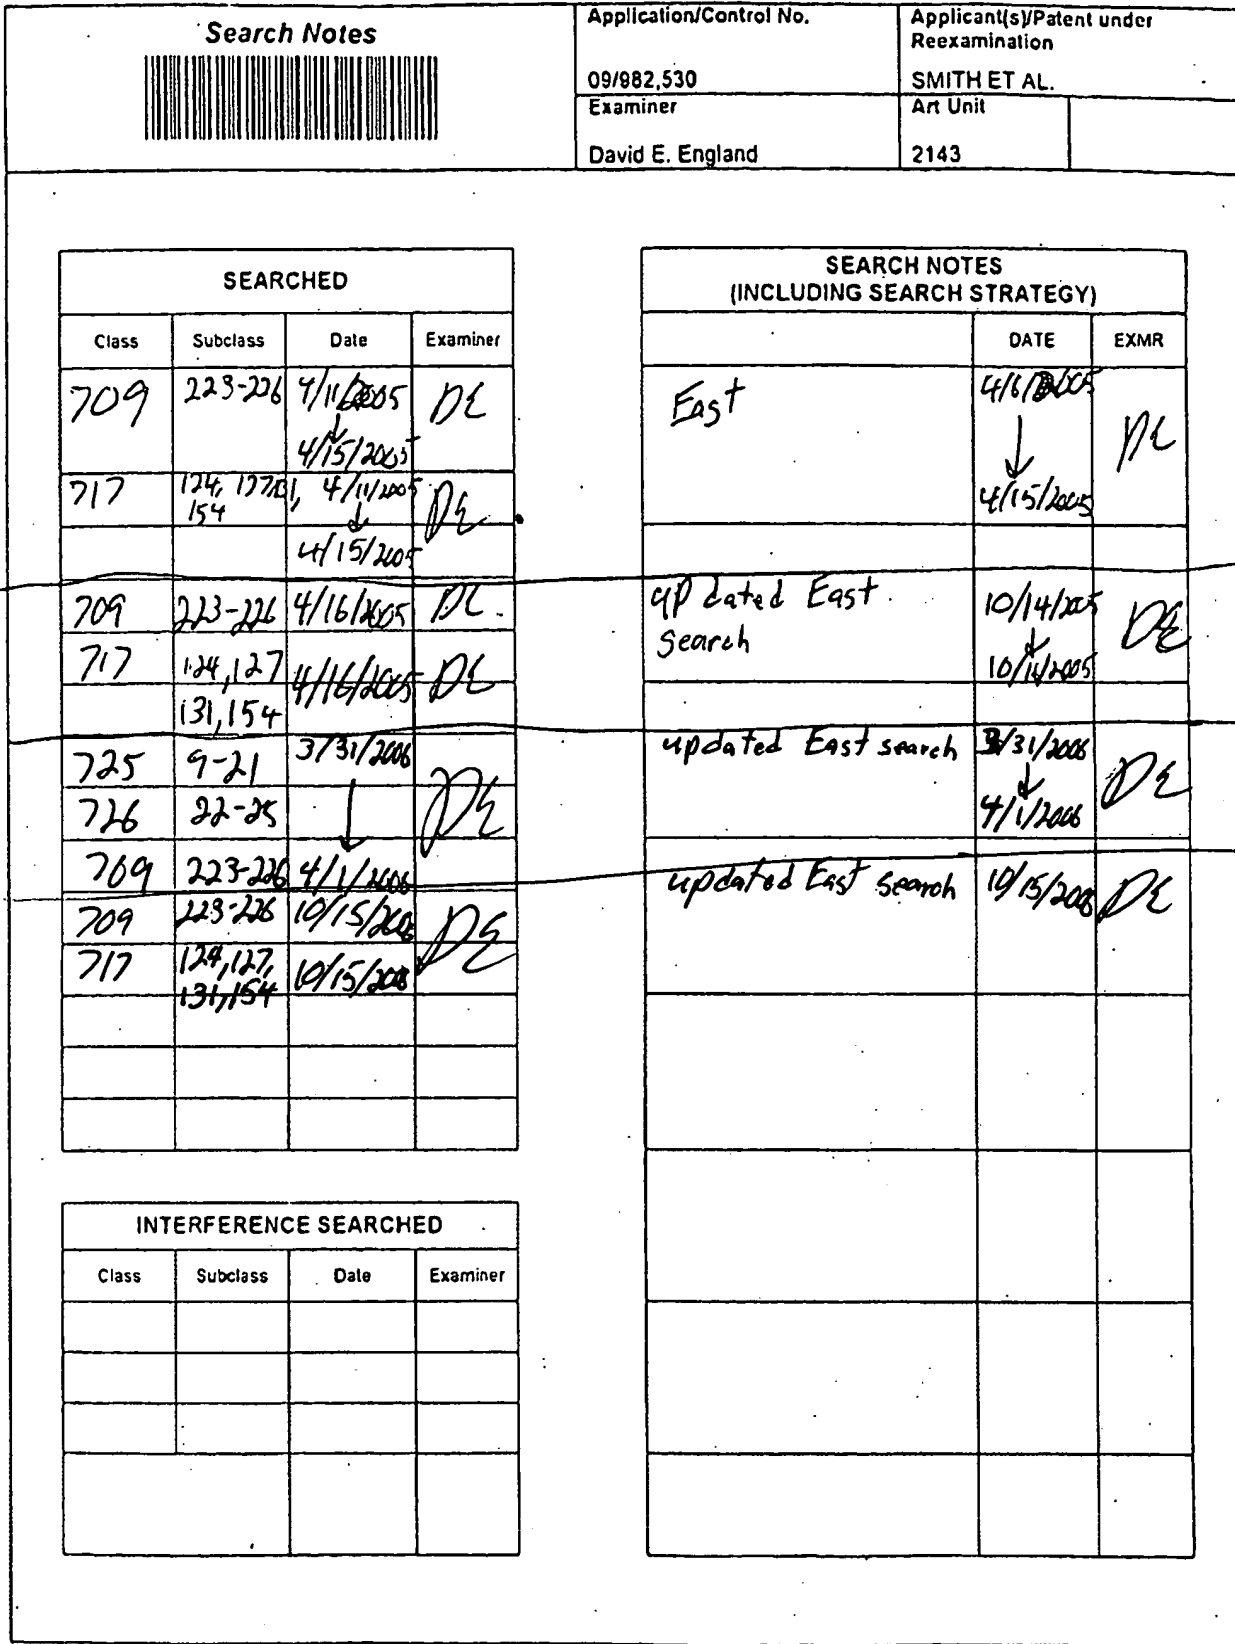 Search Notes
Application/Control No.
09/982,530
Applicant(s)/Patent under
Reexamination
SMITH ET AL.
Examiner
David E. England
Art Unit
2143
SEARCHED
Class Subclass Date Examiner
709 223-226 4/11/2005 DE
4/15/2005
717 124, 127, 131, 4/11/2005 DE
154
4/15/2005
709 223-226 4/16/2005 DE
717 124,127 4/16/2005 DE
131,154
725 9-21 3/31/2006 DE
726 22-25
709 223-226 4/1/2006
709 223-226 10/15/2006 DE
717 124,127, 10/15/2006
131,154
INTERFERENCE SEARCHED
Class Subclass Date Examiner
SEARCH NOTES
(INCLUDING SEARCH STRATEGY)
DATE EXMR
East 4/6/2005 DE
4/15/2005
updated East 10/14/2005 DE
search
updated East search 3/31/2006 DE
4/1/2006
updated East search 10/15/2006 DE